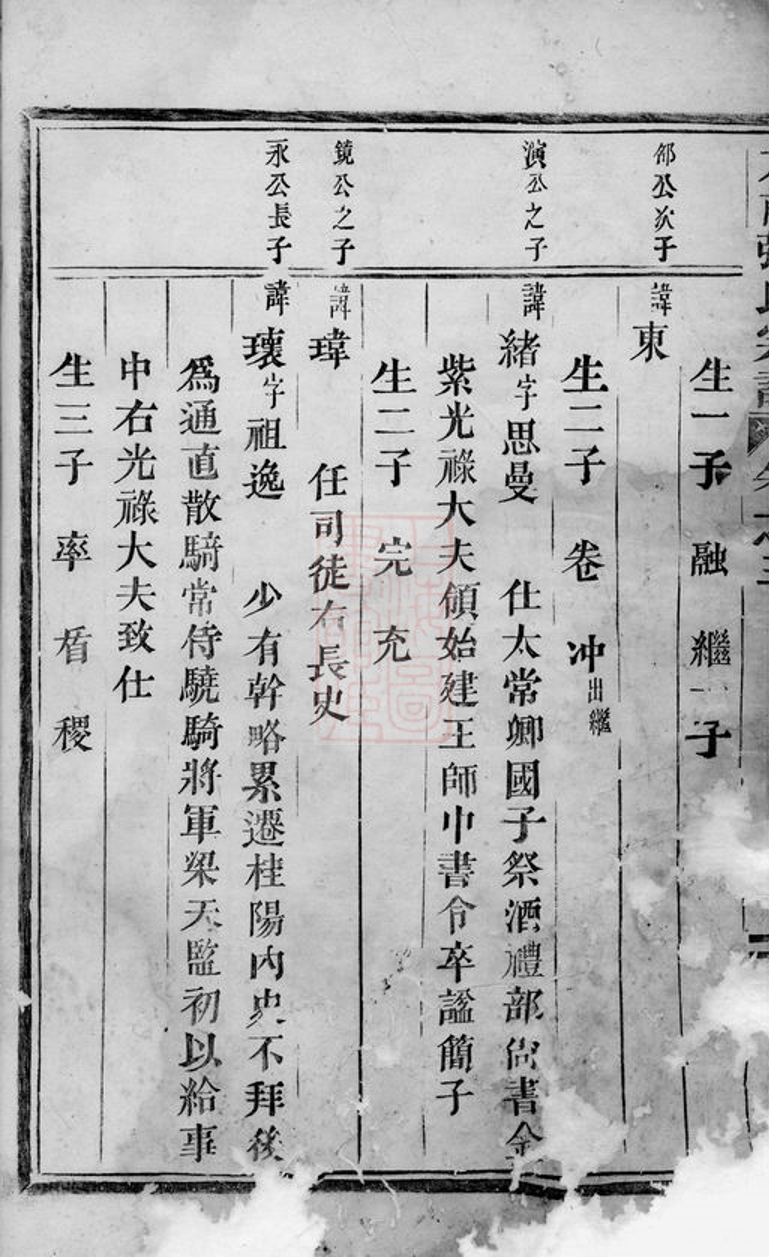 生一子 融 繼一子
邵公次子
諱東
生二子 卷 冲出繼
演公之子
諱緒字思曼 仕太常卿國子祭酒禮部尚書金
紫光祿大夫領始建王師中書令卒諡簡子
生二子 完 充
鏡公之子
諱瑋 任司徒右長史
永公長子
諱瓌字祖逸 少有幹略累遷桂陽內史不拜後
為通直散騎常侍驍騎將軍梁天監初以給事
中右光祿大夫致仕
生三子 率 盾 稷